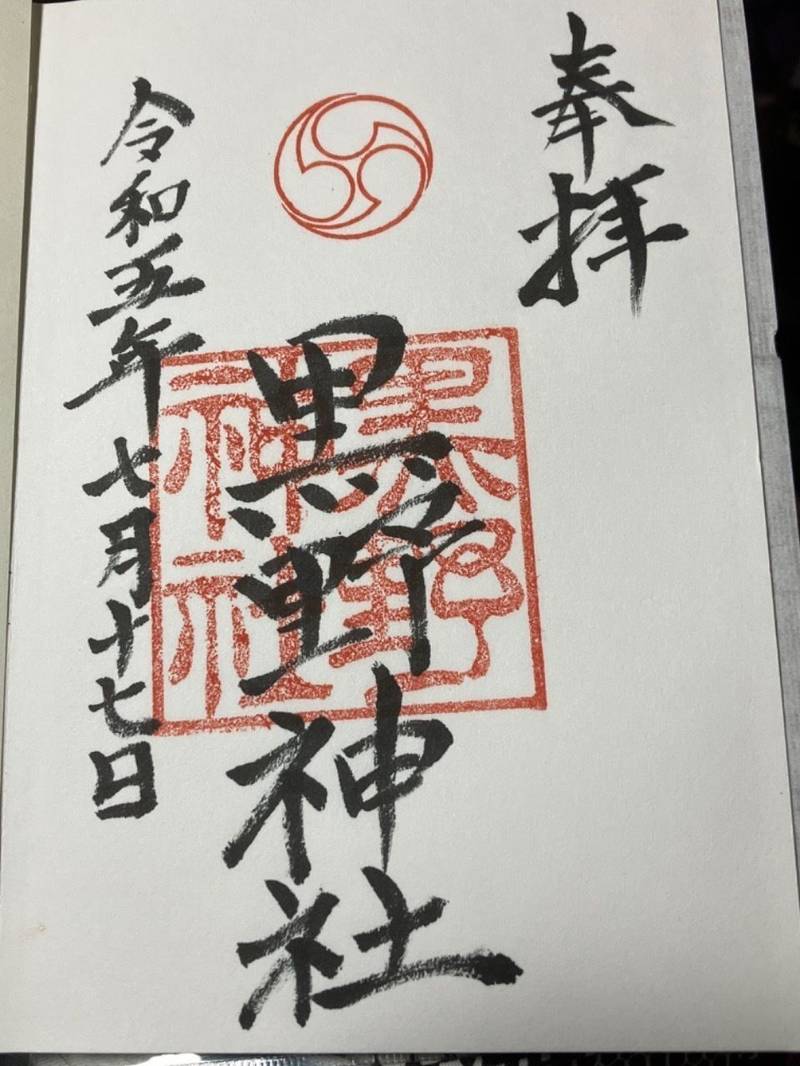 奉拝
黒野神社
黒野神社
令和五年七月十七日